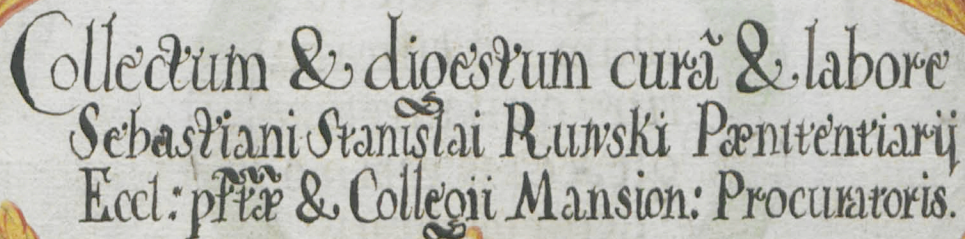 Collectum & digestum curâ & labore
Sebastiani Stanislai Ruwski Pænitentiarij
Eccl: pftæ & Collegii Mansion: Procuratoris.